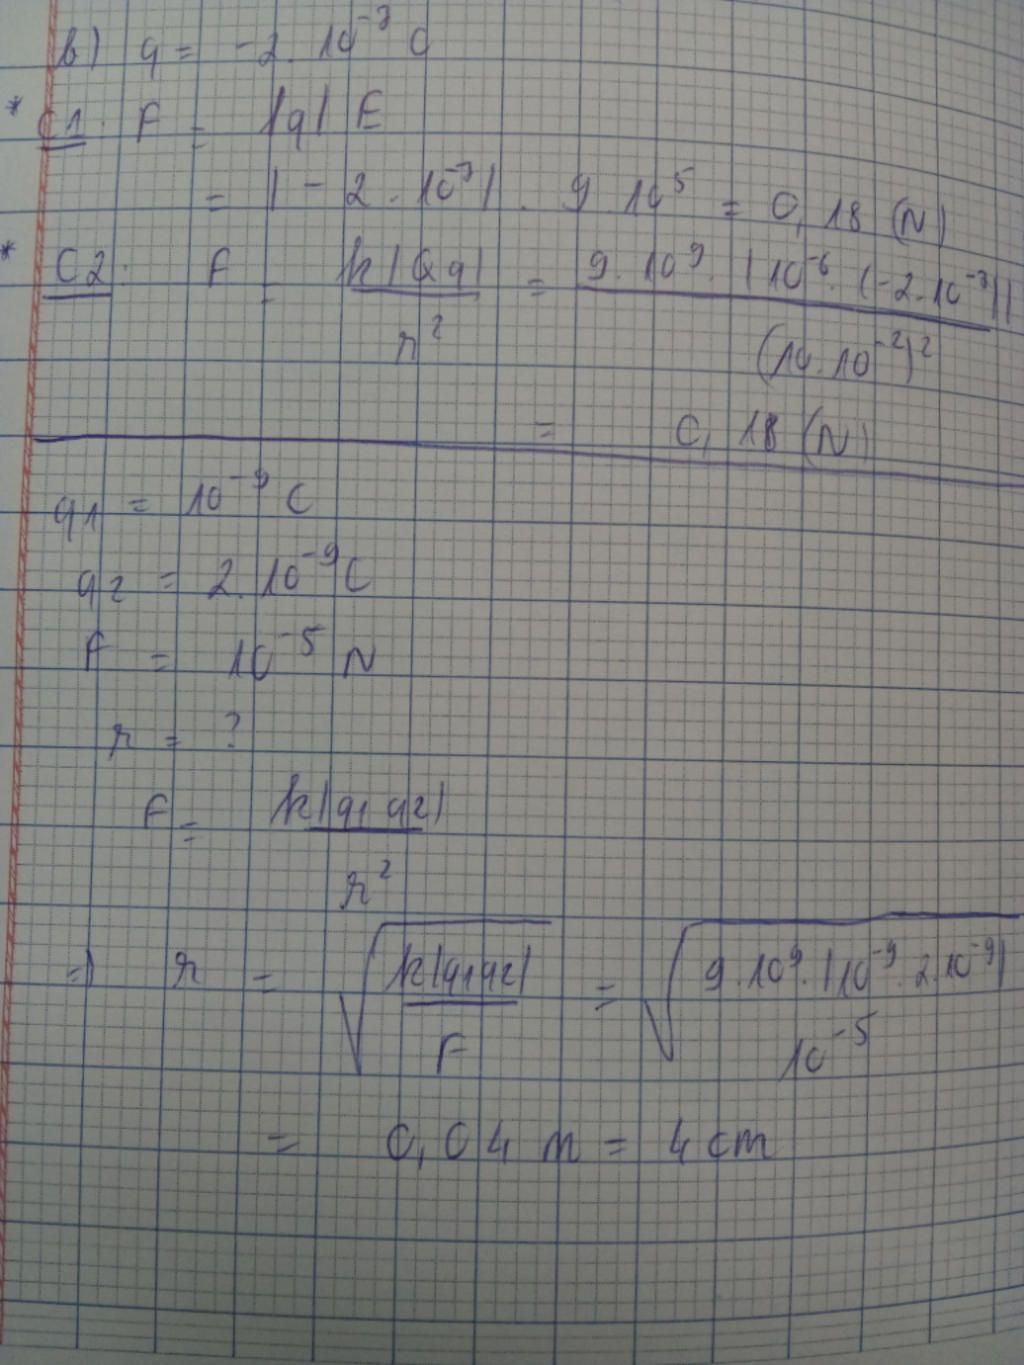 b) q = -2. 10⁻⁷ C
* C1. F = |q| E
= |-2. 10⁻⁷| . 9. 10⁵ = 0,18 (N)
* C2. F = k|Qq| / r² = 9. 10⁹. |10⁻⁶. (-2. 10⁻⁷)| / (10. 10⁻²)²
= 0,18 (N)
q1 = 10⁻⁹ C
q2 = 2. 10⁻⁹ C
F = 10⁻⁵ N
r = ?
F = k|q1 q2| / r²
=) r = √(k|q1q2| / F) = √(9. 10⁹. |10⁻⁹. 2. 10⁻⁹| / 10⁻⁵)
= 0,04 m = 4 cm